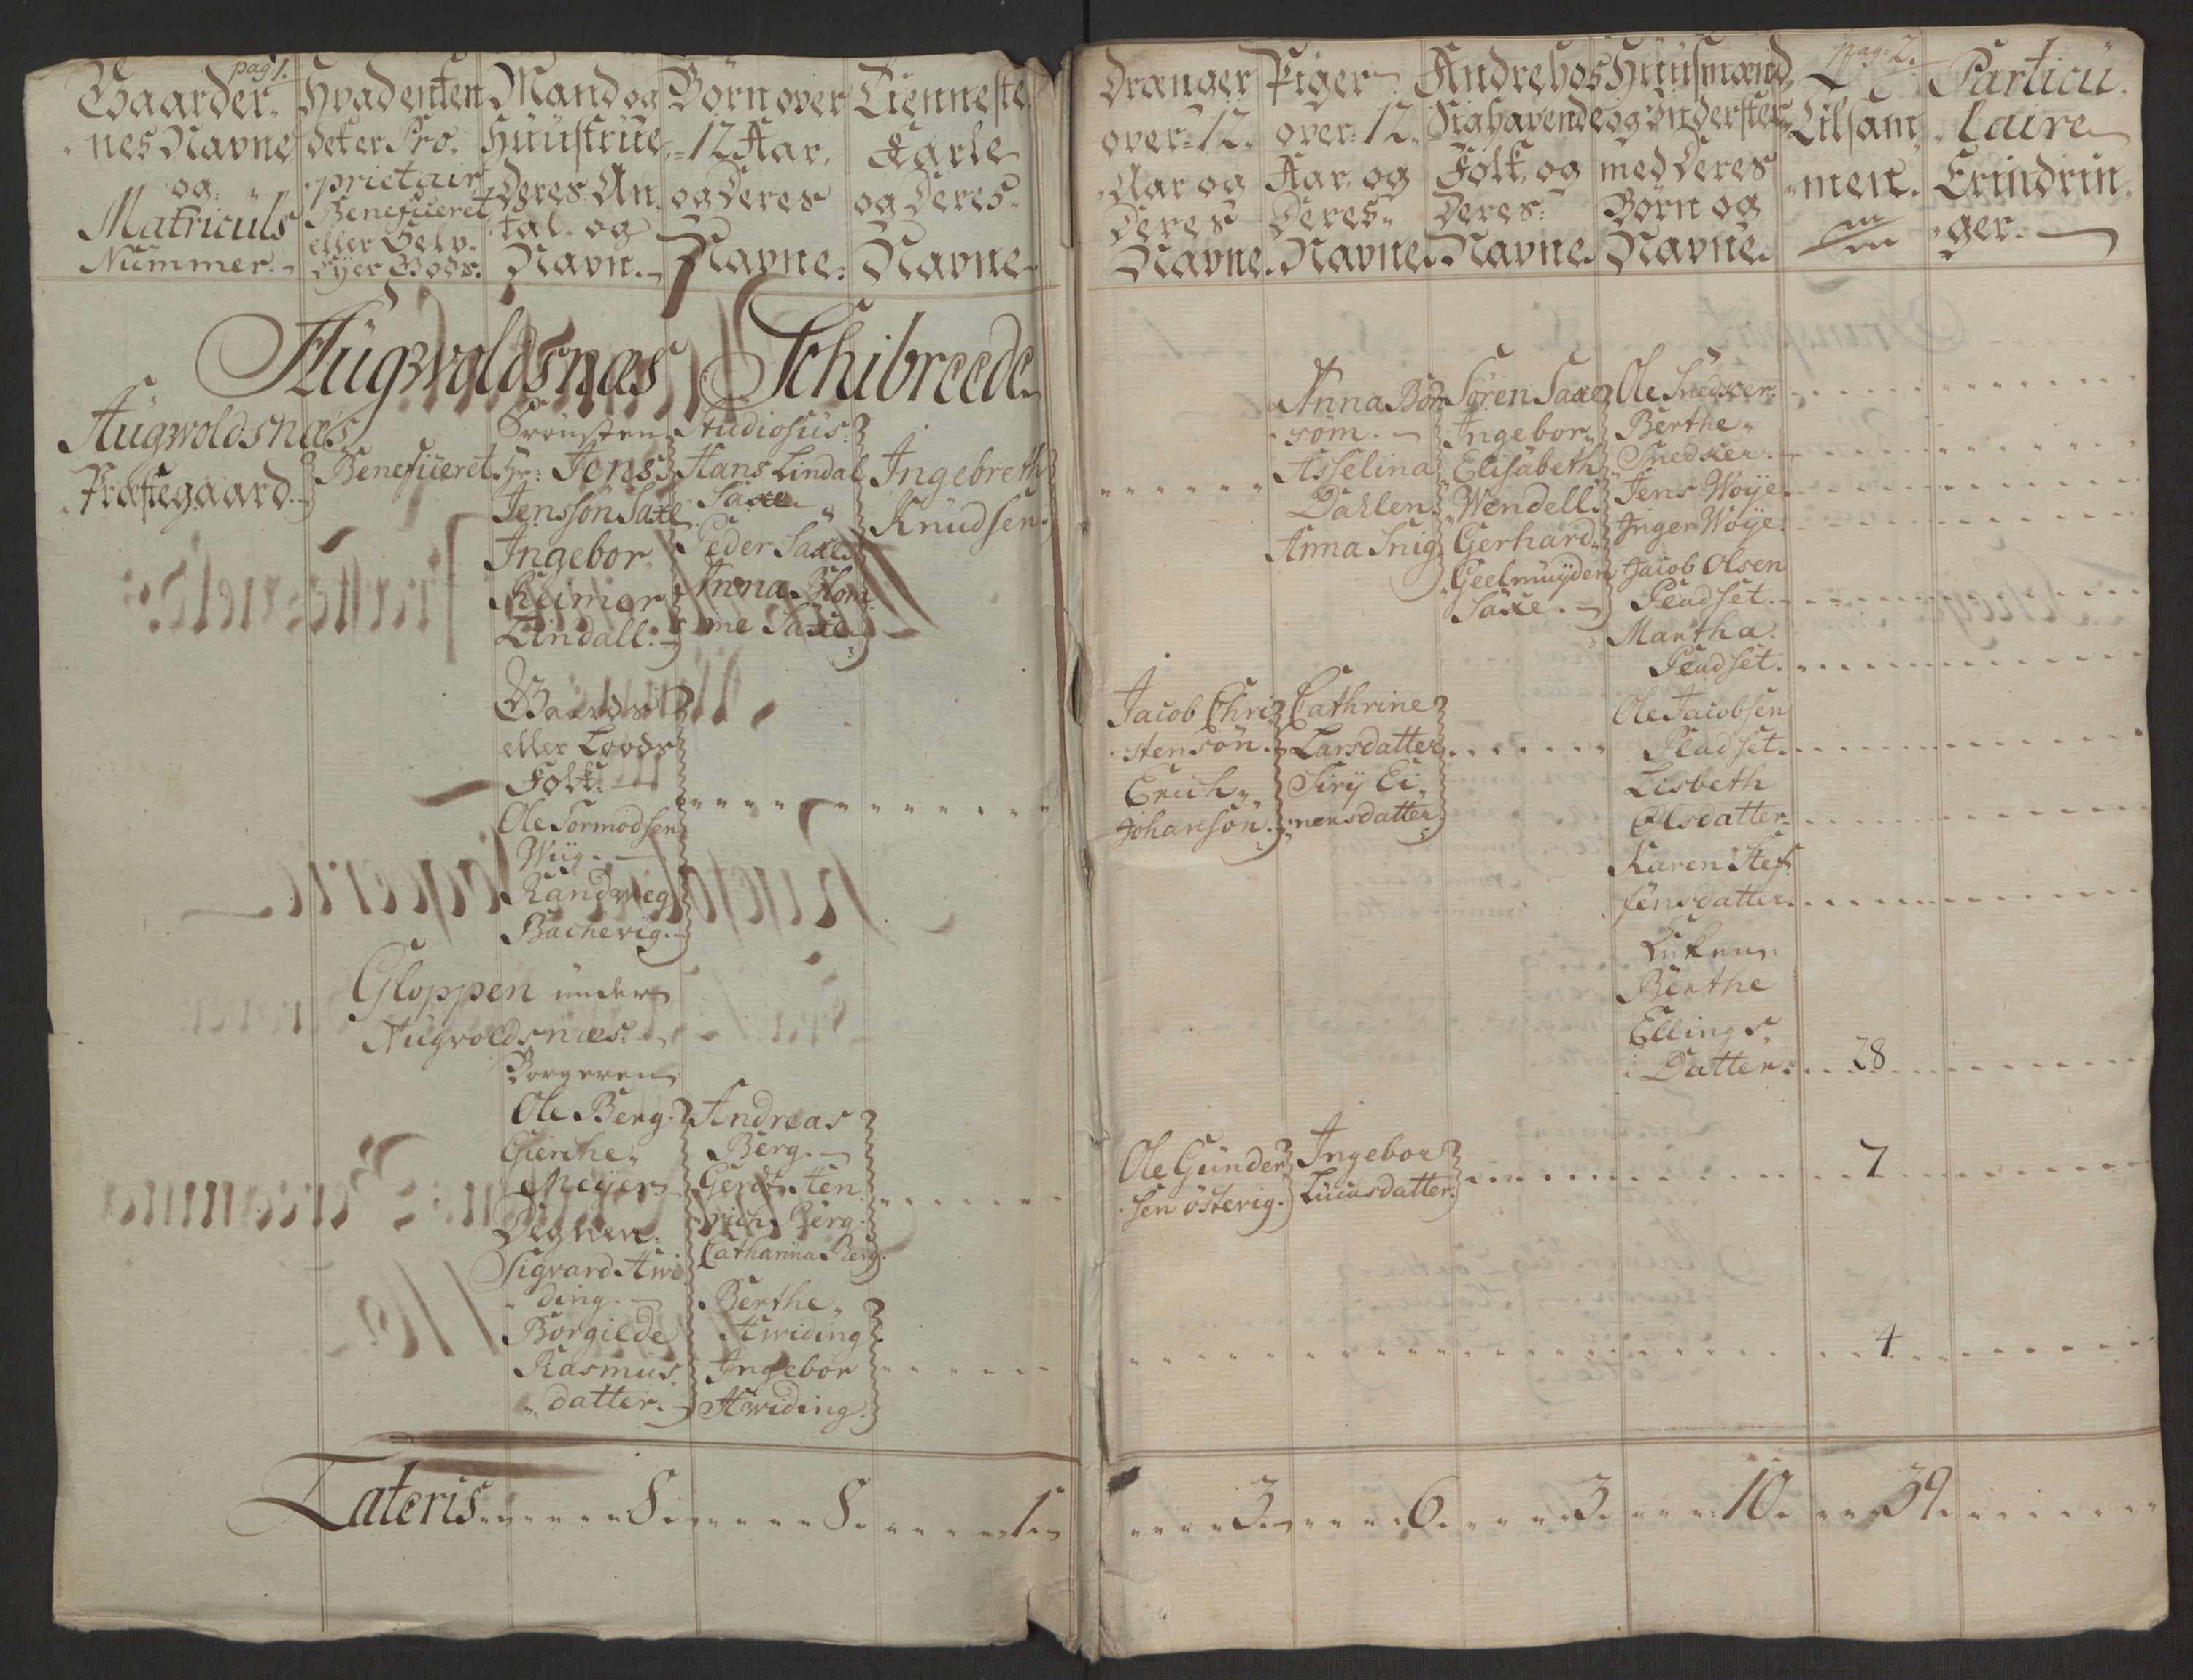 pag: 1.
Gaarder-
nes Navne
og
Matriculs
Nummer.
Hvad enten
det er Pro-
prietair
Beneficeret
eller Selv-
Ejer Gods.
Mand og
Huustrue
Deres An-
tal og
Navn.
Börn over
12 Aar,
og Deres
Navne.
Tienneste
Karle
og Deres
Navne.
Augwoldsnæs Schibreede
Augwoldsnæs
Præstegaard.
Beneficeret
Provsten
Hr: Jens
Jenssön Saxe
Ingebor
Reimer
Lindall.
Studiosus:
Hans Lindal
Saxe
Peder Saxe
Anna Blom-
ine Saxe
Ingebreth
Knudsen.
Gaards
eller Loods
Folk.
Ole Tormodsen
Wiig.
Randweg
Bacherig.
Gloppen under
Augvoldsnæs.
Borgeren
Ole Berg.
Gierche
Meyer
Degnen:
Sigvard Hwi-
ding.
Borgilde
Rasmus-
datter.
Andreas
Berg.
Gerdt Hen-
rich Berg.
Catharina Berg.
Berthe
Hwiding
Ingebor
Hwiding.
Lateris 8. 8. 1.
pag: 2.
Drænger
over 12
Aar og
Deres
Navne.
Piger
over 12
Aar, og
Deres
Navne.
Andre hos
Sig havende
Folk, og
Deres
Navne.
Huusmænd
og Inderster
med Deres
Börn og
Navne.
Tilsam-
men.
Particu-
laire
Erindrin-
ger.
Anna Bör-
söm.
Asselina
Dahlen.
Anna Snig
Sören Saxe
Ingebor
Elisabeth
Wendell.
Gerhard
Geelmuyden
Saxe.
Ole Snedker
Berthe
Snedker.
Jens Woije.
Inger Woije.
Jacob Olsen
Pladset.
Martha
Pladset.
Jacob Chri-
stensön.
Erich
Johansön.
Cathrine
Larsdatter
Siry Ei-
nersdatter
Ole Jacobsen
Pladset.
Lisbeth
Olsdatter.
Karen Stef-
fensdatter.
Berthe
Ellings
Datter. 28
Ole Gunder-
sen österig.
Ingebor
Lucasdatter.
7
4
3. 6. 3. 10. 39